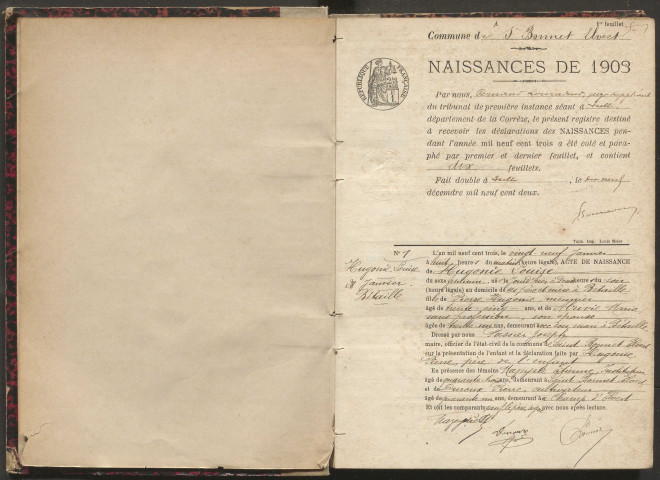 A 1er feuillet
Commune de St Bonnet Avert
NAISSANCES DE 1903
RÉPUBLIQUE FRANÇAISE
Par nous,
du tribunal de première instance séant à Tulle
département de la Corrèze, le présent registre destiné
à recevoir les déclarations des NAISSANCES pen-
dant l'année mil neuf cent trois a été coté et para-
phé par premier et dernier feuillet, et contient
dix feuillets.
Fait double à Tulle, le dix neuf
décembre mil neuf cent deux.
Tulle, Imp. Louis Moles
No 1
Hugonie Louise
28 Janvier
Bétaille
L'an mil neuf cent trois, le vingt neuf Janvier
à huit heures du matin (heure légale), ACTE DE NAISSANCE
de Hugonie Louise
du sexe féminin, né le jour d'hier à heures du soir
(heure légale) au domicile de ses père et mère à Bétaille
fille de Pierre Hugonie meunier
âgé de trente cinq ans, et de Marie
sans profession, son épouse
âgée de trente un ans, demeurant avec son mari à Bétaille
Dressé par nous Joseph
maire, officier de l'état-civil de la commune de Saint Bonnet Avert
sur la présentation de l'enfant et la déclaration faite par Hugonie
Pierre, père de l'enfant
En présence des témoins Etienne, instituteur
âgé de quarante ans, demeurant à Saint Bonnet Avert
et de Pierre, cultivateur
âgé de quarante un ans, demeurant à Champ d'Avert
Et ont les comparants signé avec nous après lecture.